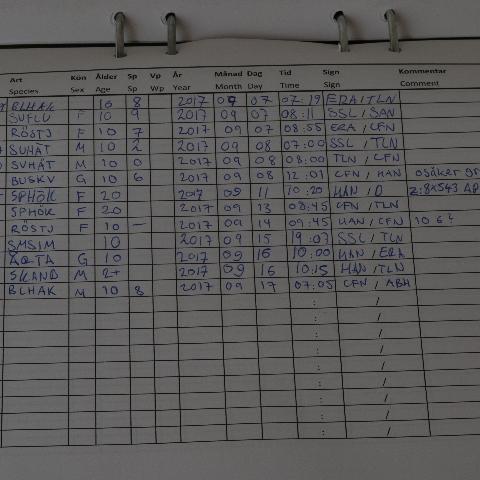 Art Kön Ålder Sp Vp År Månad Dag Tid Sign Kommentar
Species Sex Age Sp Wp Year Month Day Time Sign Comment
BLHAK 10 8 2017 09 07 07:19 ERA/TLN
SUFLU F 10 9 2017 09 07 08:11 SSL/SAN
RÖSTJ F 10 7 2017 09 07 08:55 ERA/CFN
SUHÄT M 10 2 2017 09 08 07:00 SSL/TLN
SUHÄT M 10 0 2017 09 08 08:00 TLN/CFN
BUSKV G 10 6 2017 09 08 12:01 CFN/HAN osäker
SPHÖK F 20 2017 09 11 10:20 HAN/O
SPHÖK F 20 2017 09 13 08:45 CFN/TLN
RÖSTJ F 10 – 2017 09 14 09:45 HAN/CFN
SMSIM 10 2017 09 15 19:07 SSL/TLN
G 10 2017 09 16 10:00 HAN/ERA
SKAND M 2+ 2017 09 16 10:15 HAN/TLN
BLHAK M 10 8 2017 09 17 07:05 CFN/ABH